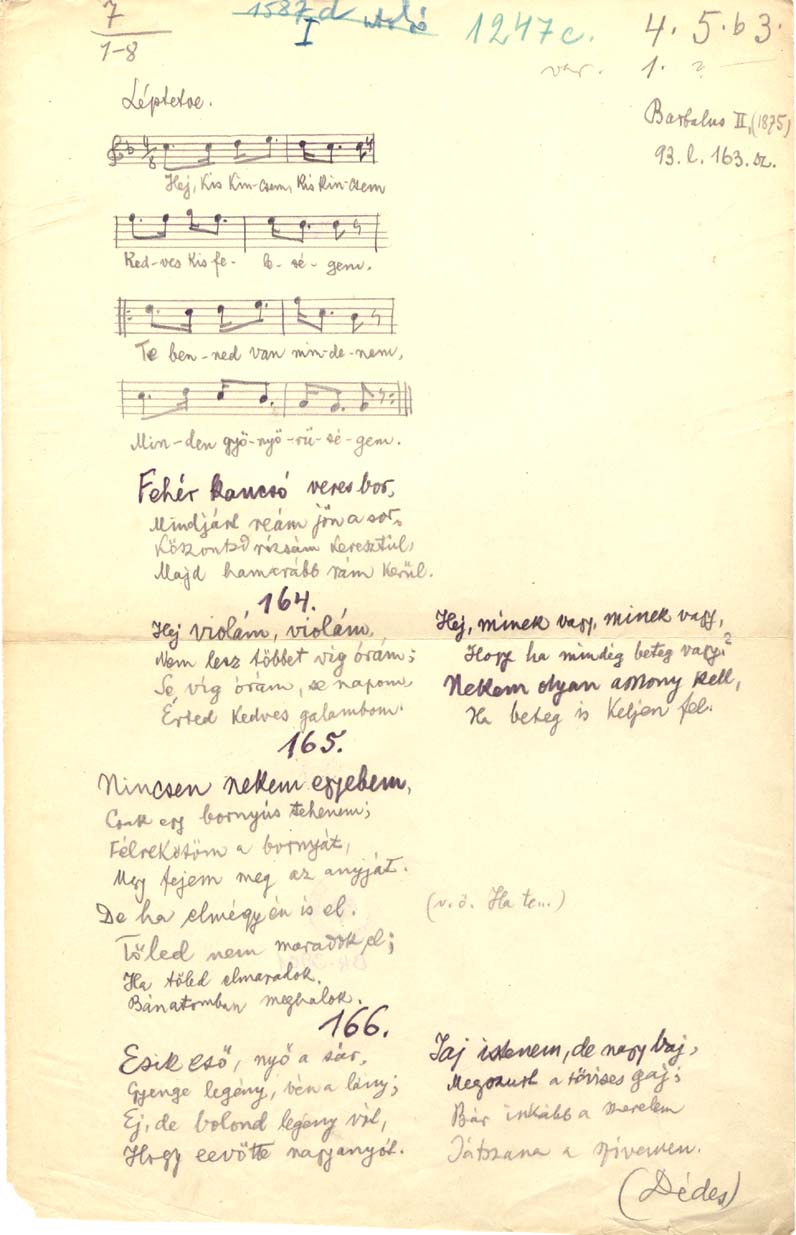 7
1-8
1587 d
I
1247 c.
4. 5. b 3.
var. 1. ?
Léptetve.
Bartalus II. (1875)
93. l. 163. sz.
Hej, Kis Kin-csem, Kis Kin-csem
Ked-ves Kis fe-le-sé-gem.
Te ben-ned van min-de-nem,
Min-den gyö-nyö-rű-sé-gem.
Fehér kancsó veres bor,
Mindjárt reám jön a sor,
Köszöntsd rózsám keresztül,
Majd hamarább rám kerül.
164.
Hej violám, violám,
Nem lesz többet víg órám;
Se, víg órám, se napom
Érted Kedves galambom.
Hej, minek vagy, minek vagy,
Hogy ha mindég beteg vagy?
Nekem olyan asszony kell,
Ha beteg is Keljen fel.
165.
Nincsen nekem egyebem,
Csak egy bornyús tehenem;
Félrekötöm a bornyát,
Ugy fejem meg az anyját.
De ha elmégy én is el.
(v.ö. Ha te...)
Tőled nem maradok el;
Ha tőled elmaradok.
Bánatomban meghalok.
166.
Esik eső, nyő a sár,
Gyenge legény, vén a lány;
Ej, de bolond legény vót,
Hogy eevötte nagyanyót.
Jaj istenem, de nagy baj,
Megszurt a tövises gaj;
Bár inkább a szerelem
Játszana a szivemen.
(Dédes)